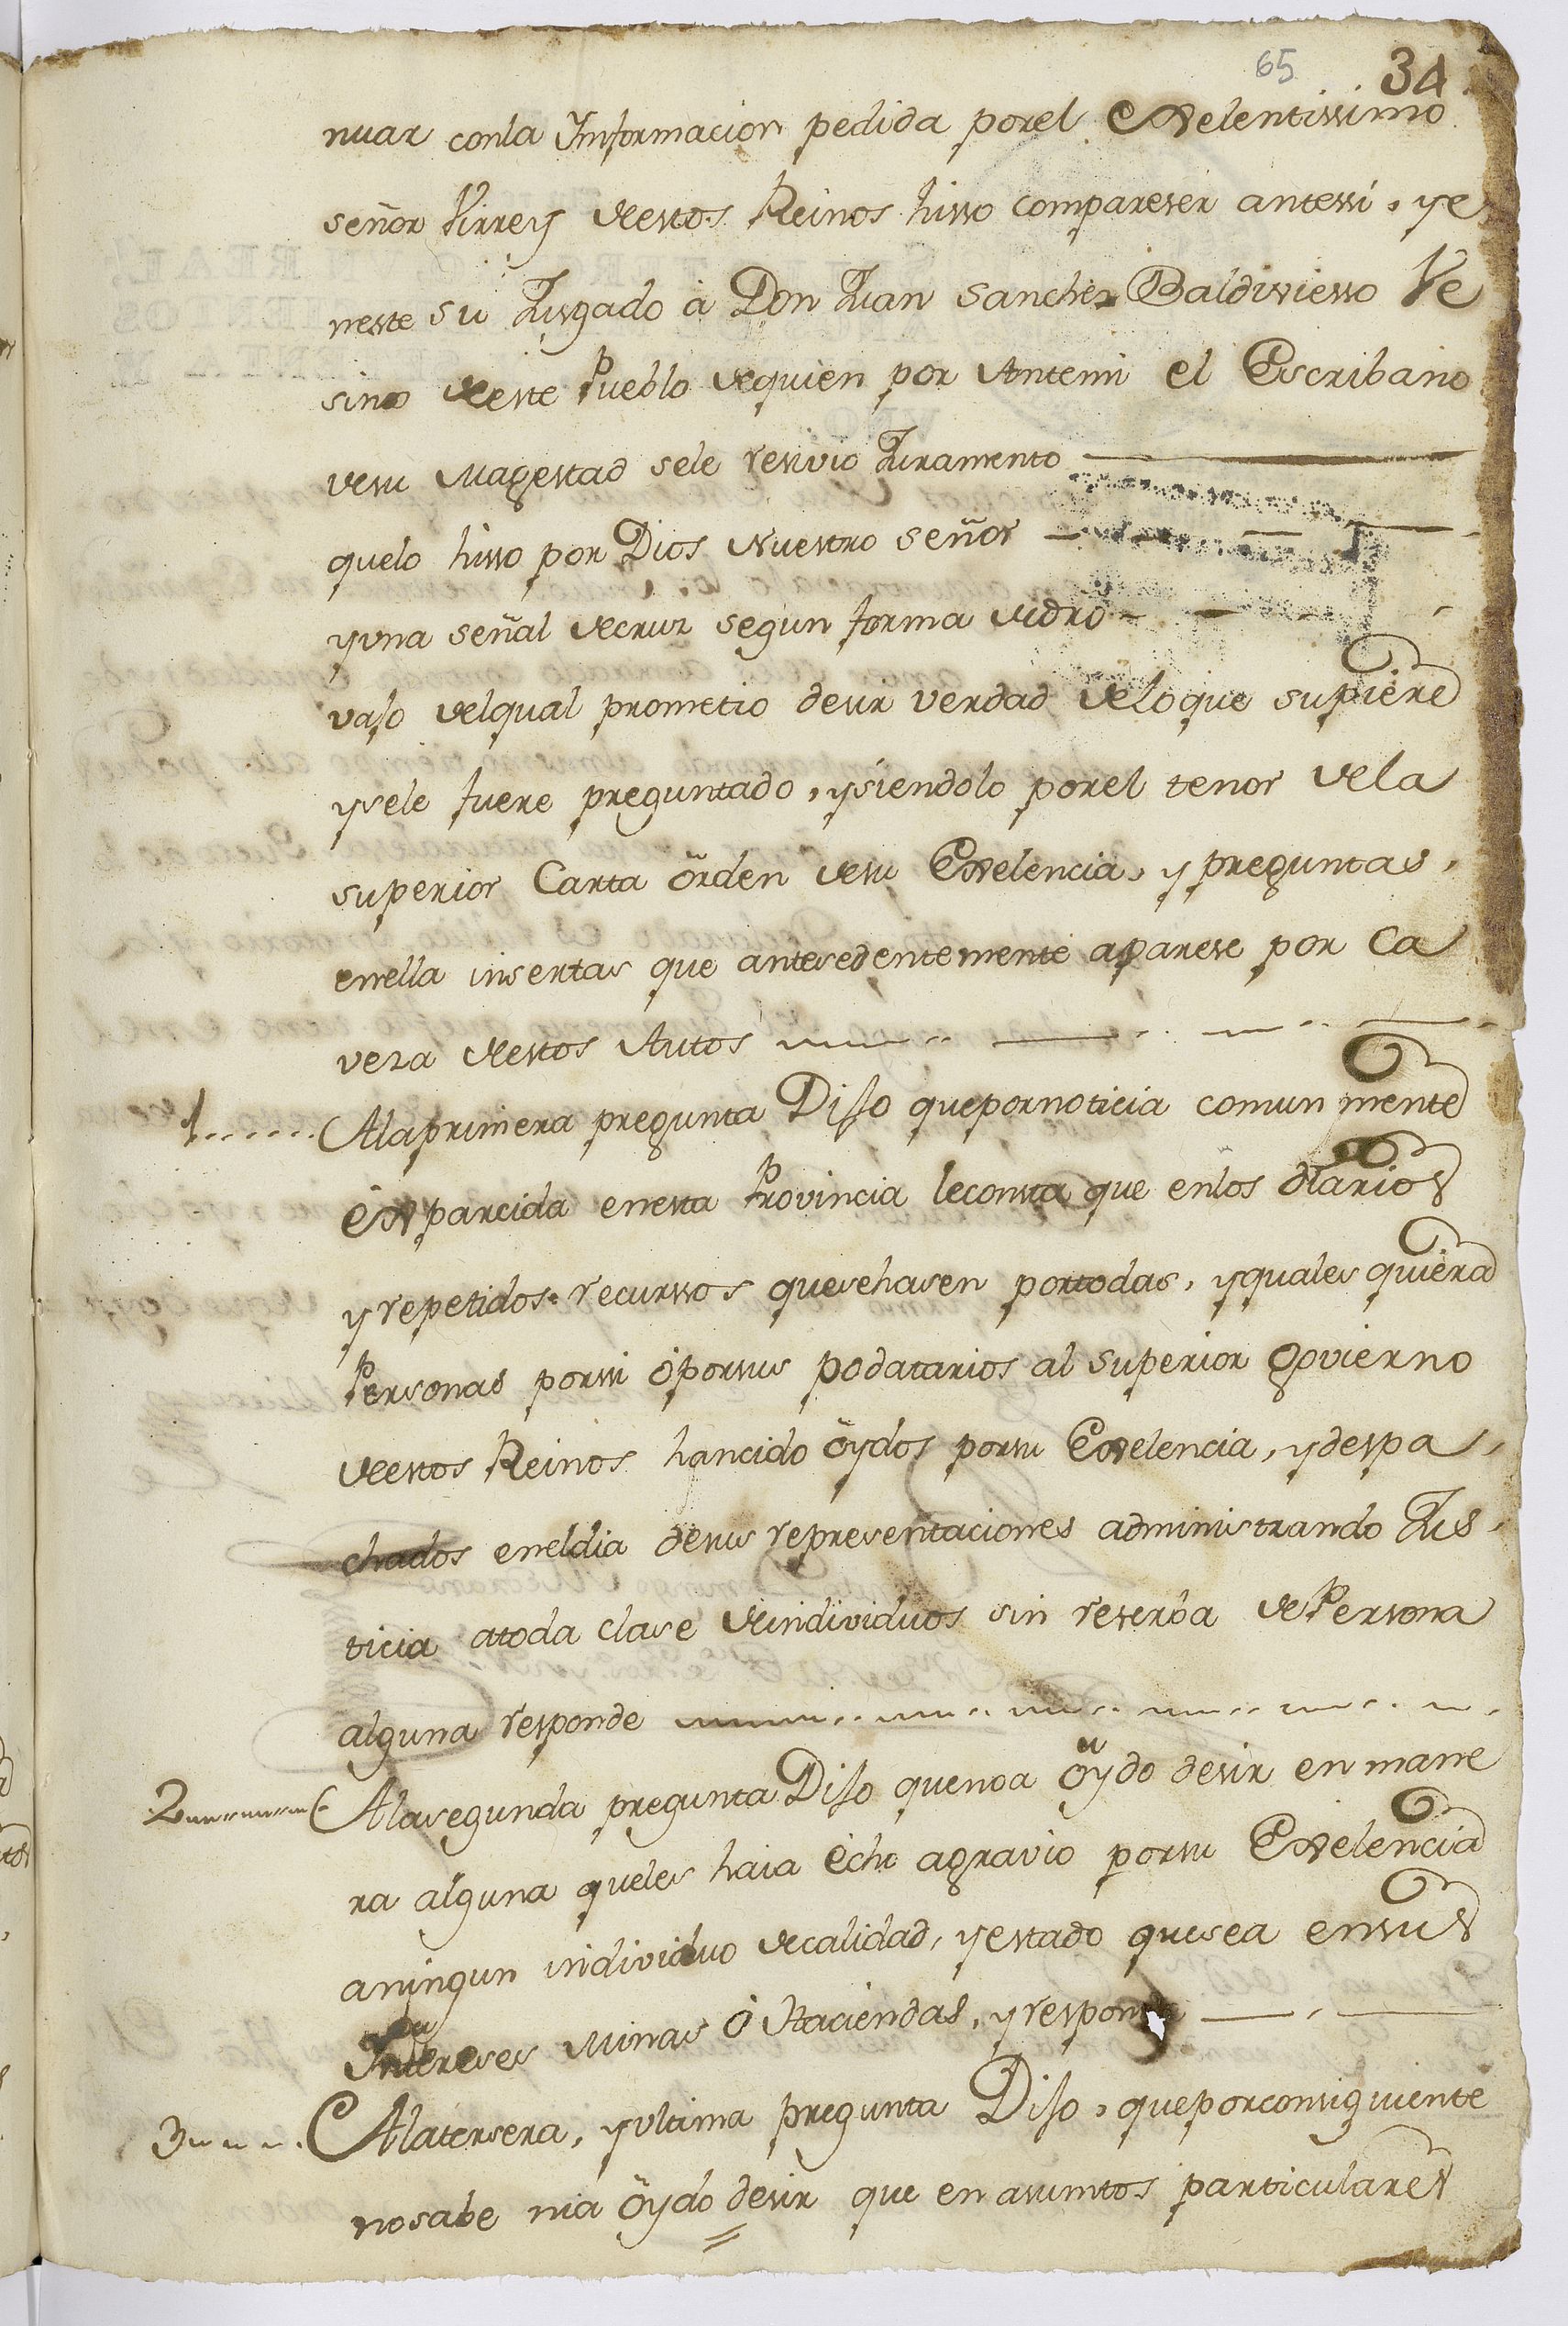 65 34
nuar conla Informacion pedida porel Exelentissimo
señor Virrey destos Reinos hisso compareser antessi, ye
neste su Jusgado â Don Juan Sanches Baldiviesso Ve
sino deste Pueblo dequien por Antemi el Escribano
desu Magestad sele resivio Juramento
quelo hisso por Dios Nuestro señor
yuna señal decruz segun forma dedro
vajo delqual prometio desir verdad deloque supiere
ysele fuere preguntado, ysiendolo porel tenor dela
superior Carta órden desu Exelencia, y preguntas,
enella insertas que antesedentemente aparese por ca
veza destos Autos
1 Alaprimera pregunta Dijo quepornoticia comun mente
exparcida enesta Provincia leconsta que enlos diarios
y repetidos recurssos quesehasen portodas, yquales quiera
Personas porssi óporsus podatarios al superior govierno
destos Reinos hancido óydos porsu Exelencia, ydespa,
chados eneldia desus representaciones administrando Jus,
ticia atoda clase deindividuos sin reserba dePersona
alguna responde
2 Alasegunda pregunta Dijo quenoa óydo desir en mane
ra alguna queles haia écho agravio porsu Exelencia
aningun individuo decalidad, yestado quesea ensus
Intereses Minas ó Haciendas, y responde
3 Alatersera, yultima pregunta Dijo, queporconsiguiente
nosabe nia óydo desir que en asumtos particulares